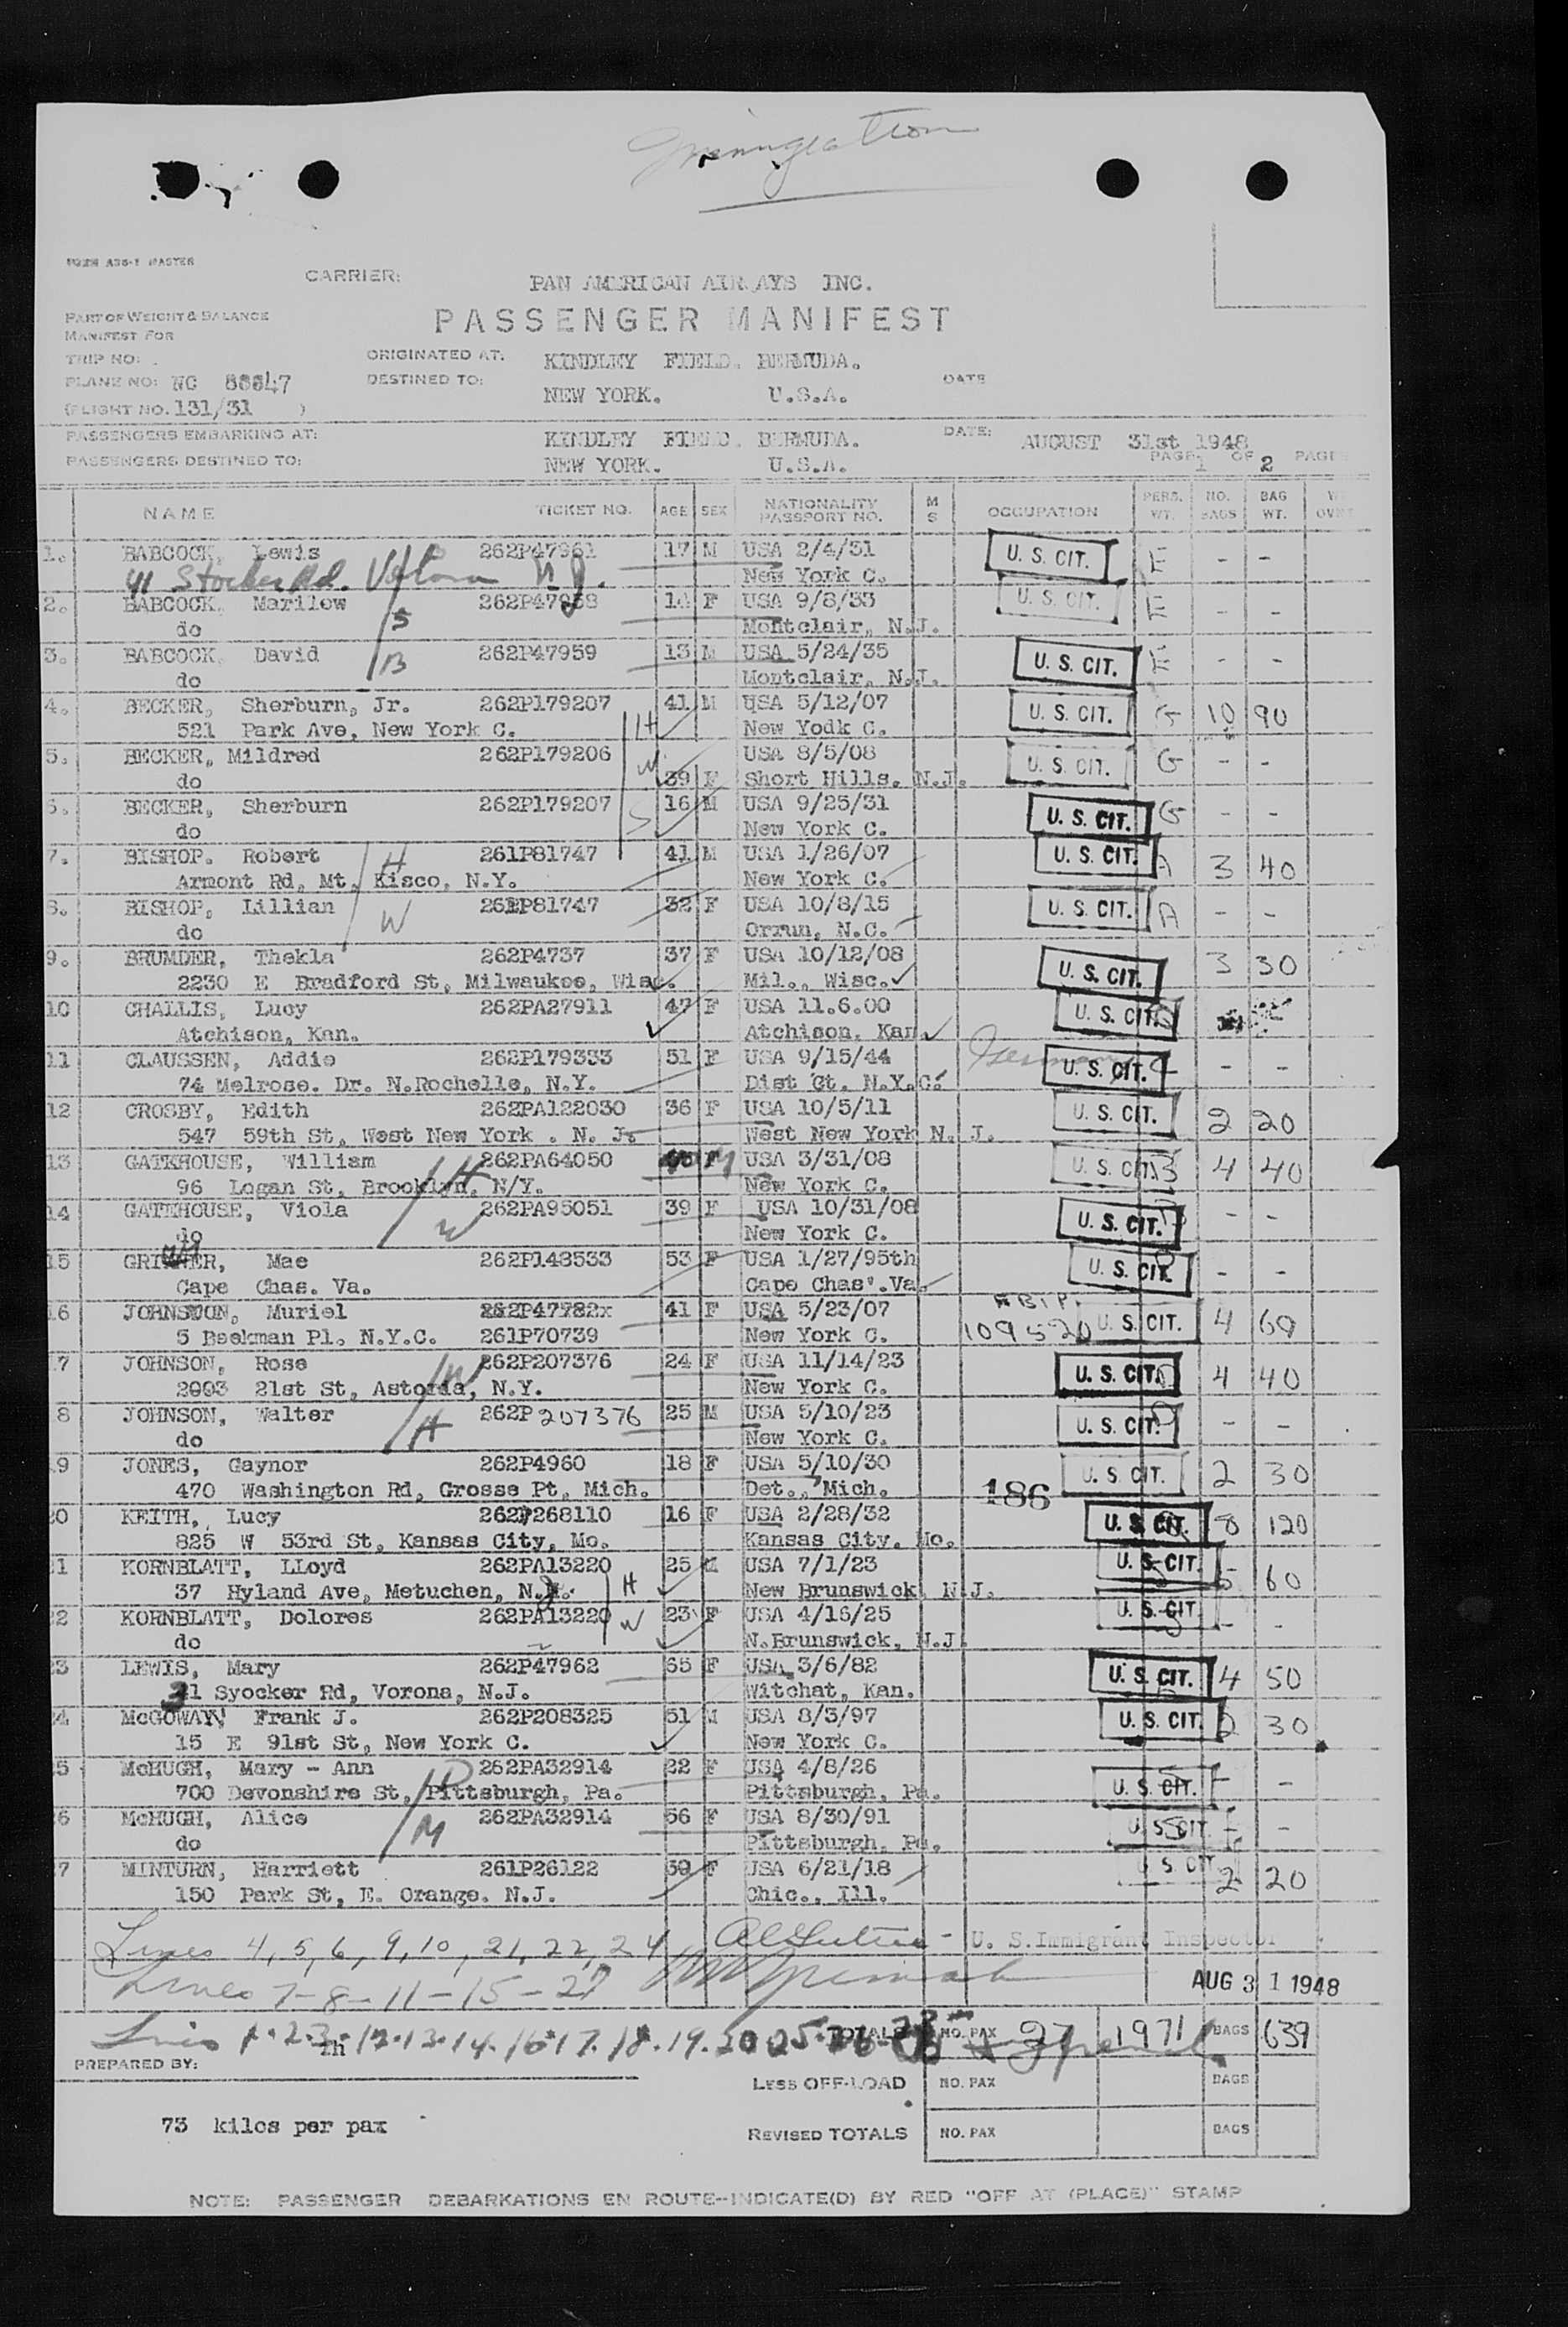 Immigration
FORM A36-1 MASTER
CARRIER: PAN AMERICAN AIRWAYS INC.
PASSENGER MANIFEST
PART OF WEIGHT & BALANCE
MANIFEST FOR
TRIP NO: ORIGINATED AT: KINDLEY FIELD. BERMUDA.
PLANE NO: NC DESTINED TO: NEW YORK. U.S.A. DATE
(FLIGHT NO. 131/31 )
PASSENGERS EMBARKING AT: KINDLEY FIELD. BERMUDA. DATE: AUGUST 31st 1948
PASSENGERS DESTINED TO: NEW YORK. U.S.A. PAGE 1 OF 2 PAGES
NAME TICKET NO. AGE SEX NATIONALITY PASSPORT NO. M S OCCUPATION PERS. WT. NO. BAGS BAG WT.
1. BABCOCK, Lewis 262P47961 17 M USA 2/4/31 U. S. CIT. E - -
41 Stocker Rd. N.J. New York C.
2. BABCOCK, Marilew S 262P47958 14 F USA 9/8/33 U. S. CIT. E - -
do Montclair, N.J.
3. BABCOCK, David B 262P47959 13 M USA 5/24/35 U. S. CIT. E - -
do Montclair, N.J.
4. BECKER, Sherburn, Jr. 262P179207 H 41 M USA 5/12/07 U. S. CIT. G 10 90
521 Park Ave, New York C. New Yodk C.
5. BECKER, Mildred 262P179206 W USA 8/5/08 U. S. CIT. G - -
do 39 F Short Hills, N.J.
6. BECKER, Sherburn 262P179207 S 16 M USA 9/25/31 U. S. CIT. G - -
do New York C.
7. BISHOP. Robert H 261P81747 41 M USA 1/26/07 U. S. CIT. A 3 40
Armont Rd, Mt. Kisco, N.Y. New York C.
8. BISHOP, Lillian W 261P81747 32 F USA 10/8/15 U. S. CIT. A - -
do Orrun, N.C.
9. BRUMDER, Thekla 262P4737 37 F USA 10/12/08 U. S. CIT. 3 30
2230 E Bradford St, Milwaukee, Wisc. Mil., Wisc.
10 CHALLIS, Lucy 262PA27911 47 F USA 11.6.00 U. S. CIT.
Atchison, Kan. Atchison, Kan
11 CLAUSSEN, Addie 262P179333 51 F USA 9/15/44 German U. S. CIT. - -
74 Melrose. Dr. N.Rochelle, N.Y. Dist Ct. N.Y.C.
12 CROSBY, Edith 262PA122030 36 F USA 10/5/11 U. S. CIT. 2 20
547 59th St, West New York . N. J. West New York N. J.
13 GATEHOUSE, William H 262PA64050 40 M USA 3/31/08 U. S. CIT. B 4 40
96 Logan St, Brooklyn, N/Y. New York C.
14 GATEHOUSE, Viola W 262PA95051 39 F USA 10/31/08 U. S. CIT. - -
do New York C.
15 Mae 262P148533 53 F USA 1/27/95th U. S. CIT. - -
Cape Chas. Va. Cape Chas'.Va.
16 JOHNSTON, Muriel 262P47782x 41 F USA 5/23/07 U. S. CIT. 4 60
5 Beekman Pl, N.Y.C. 261P70739 New York C. 109520
17 JOHNSON, Rose W 262P207376 24 F USA 11/14/23 U. S. CIT. 4 40
2003 21st St, Astoria, N.Y. New York C.
18 JOHNSON, Walter H 262P 207376 25 M USA 5/10/23 U. S. CIT. - -
do New York C.
19 JONES, Gaynor 262P4960 18 F USA 5/10/30 U. S. CIT. 2 30
470 Washington Rd, Grosse Pt, Mich. Det., Mich. 186
20 KEITH, Lucy 262P268110 16 F USA 2/28/32 U. S. CIT. 8 120
825 W 53rd St, Kansas City, Mo. Kansas City. Mo.
21 KORNBLATT, LLoyd 262PA13220 25 M USA 7/1/23 U. S. CIT. 5 60
37 Hyland Ave, Metuchen, N.J. H New Brunswick, N.J.
22 KORNBLATT, Dolores 262PA13220 W 23 F USA 4/16/25 U. S. CIT. - -
do N.Brunswick, N.J.
23 LEWIS, Mary 262P47962 65 F USA 3/6/82 U. S. CIT. 4 50
31 Syocker Rd, Vorona, N.J. Witchat, Kan.
24 McGOWAN Frank J. 262P208325 51 M USA 8/3/97 U. S. CIT. 2 30
15 E 91st St, New York C. New York C.
25 McHUGH, Mary - Ann D 262PA32914 22 F USA 4/8/26 U. S. CIT. - -
700 Devonshire St, Pittsburgh, Pa. Pittsburgh, Pa.
26 McHUGH, Alice M 262PA32914 56 F USA 8/30/91 U. S. CIT. - -
do Pittsburgh, Pa.
27 MINTURN, Harriett 261P26122 30 F USA 6/21/18 U. S. CIT. 2 20
150 Park St, E. Orange. N.J. Chic., Ill.
Lines 4, 5, 6, 9, 10, 21, 22, 24 - U. S. Immigrant Inspector
Lines 7-8-11-15-27 AUG 31 1948
Lines 1.2.3.12.13.14.16.17.18.19.20 25 26 TOTALS NO. PAX 27 1971 BAGS 639
PREPARED BY:
LESS OFF-LOAD NO. PAX BAGS
73 kilos per pax
REVISED TOTALS NO. PAX BAGS
NOTE: PASSENGER DEBARKATIONS EN ROUTE--INDICATE(D) BY RED "OFF AT (PLACE)" STAMP